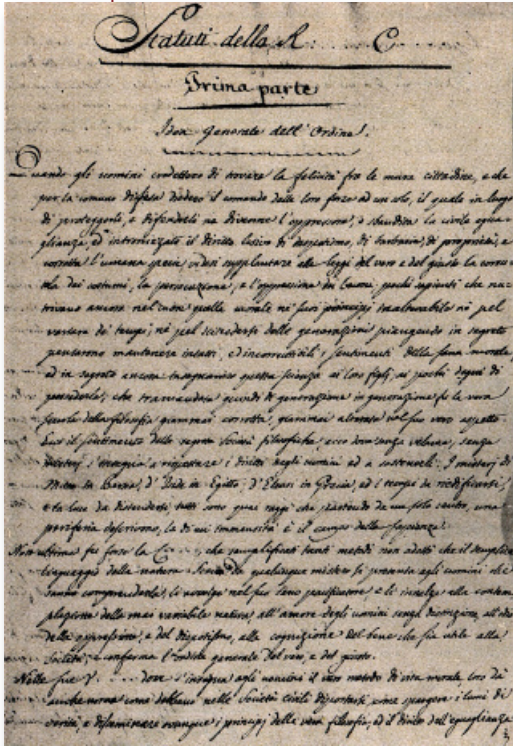 Statuti della R....... C.......
Prima parte
Idea generale dell'Ordine.
Quando gli uomini credettero di trovare la felicità fra le mura cittadine, e che
per la comune difesa diedero il comando delle loro forze ad un solo, il quale in luogo
di proteggerli, e difenderli ne divenne l'oppressore, e sbandita la civile egua-
glianza, ed intromizzato il diritto di despotismo, di barbarie, di proprietà, e
corrotta l'umana specie videsi supplantare alle leggi del vero e del giusto la corru
tela dei costumi, la persecuzione, e l'oppressione dei buoni, pochi sapienti che nu-
trivano ancora nel cuore quella morale ne' suoi principj inalterabile nè pel
variare de' tempi, nè pel succedersi delle generazioni piangendo in segreto
pensarono mantenere intatti, ed incorruttibili i sentimenti della sana morale,
ed in segreto ancora insegnarono questa scienza ai loro figli, ai pochi degni di
possederla, che tramandata quindi di generazione in generazione fu la vera
scuola della filosofia giammai corrotta, giammai alterata nel suo vero aspetto
senza velame, senza
misteri s'insegna a rispettare i diritti negli uomini ed a sostenerli. I misterj di
Mitra in Persia, d'Iside in Egitto, d'Eleusi in Grecia, ed i tempj da riedificarsi,
e la luce da diffondersi tutti sono quai raggi che partendo da un solo centro, una
periferia descrivono, la di cui immensità è il campo della sapienza.
Non ultima fu forse la C......., che semplificati tanti metodi non addetti che il semplice
linguaggio della natura. Senza qualunque mistero si presenta agli uomini che
sanno comprenderla, li accoglie nel suo seno pacificatore e li innalza alla contem
plazione della mai variabile natura, all'amore degli uomini senza distinzione, all'odio
della oppressione, e del dispotismo, alla cognizione del bene che sia utile alla
Società, e conferma l'indole generale del vero, e del giusto.
Nelle sue V....... dove s'insegna agli uomini il vero metodo di vita morale loro dà
anche norma come debbano nelle Società Civili diportarsi, come spargere i lumi di
verità, e disseminare ovunque i principj della vera filosofia, ed il diritto dell'eguaglianza